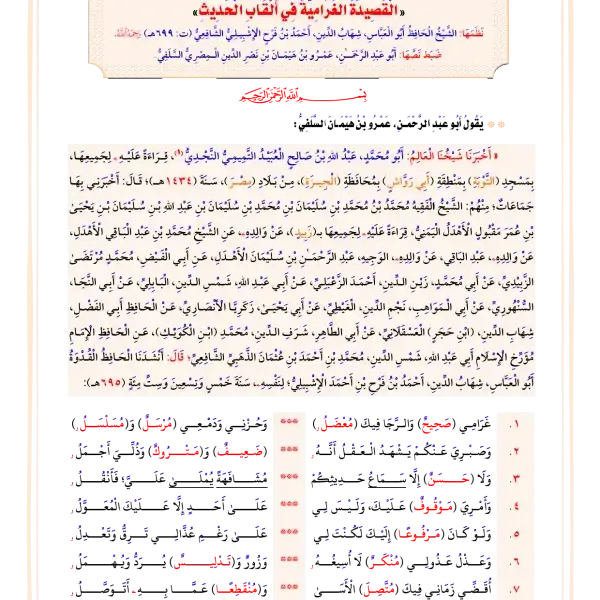 « الْقَصِيدَةُ الْغَرَامِيَّةُ فِي أَلْقَابِ الْحَدِيثِ »
نَظَمَهَا: الشَّيْخُ الْحَافِظُ أَبُو الْعَبَّاسِ، شِهَابُ الدِّينِ، أَحْمَدُ بْنُ فَرْحٍ الْإِشْبِيلِيُّ الشَّافِعِيُّ (ت: ٦٩٩هـ) رَحِمَهُ اللهُ.
ضَبَطَ نَصَّهَا: أَبُو عَبْدِ الرَّحْمَـٰنِ، عَمْرُو بْنُ هَيْمَانَ بْنِ نَصْرِ الدِّينِ الْمِصْرِيُّ السَّلَفِيُّ
بِسْمِ اللهِ الرَّحْمَنِ الرَّحِيمِ
** يَقُولُ أَبُو عَبْدِ الرَّحْمَـنِ، عَمْرُو بْنُ هَيْمَـانَ السَّلَفِيُّ:
« أَخْبَرَنَا شَيْخُنَا الْعَالِمُ: أَبُو مُحَمَّدٍ، عَبْدُ اللهِ بْنُ صَالِحٍ الْعُبَيْدُ التَّمِيمِيُّ النَّجْدِيُّ(١)، قِرَاءَةً عَلَيْهِ لِجَمِيعِهَا،
بِمَسْجِدِ (التَّوْبَةِ) بِمَنْطِقَةِ (أَبِي رَوَّاشٍ) بِمُحَافَظَةِ (الْجِيزَةِ)، مِنْ بِلَادِ (مِصْرَ)، سَنَةَ (١٤٣٤هـ)؛ قَالَ: أَخْبَرَنِي بِهَا
جَمَاعَاتٌ؛ مِنْهُمُ: الشَّيْخُ الْفَقِيهُ مُحَمَّدُ بْنُ مُحَمَّدِ بْنِ سُلَيْمَانَ بْنِ مُحَمَّدِ بْنِ سُلَيْمَانَ بْنِ عَبْدِ اللهِ بْنِ سُلَيْمَانَ بْنِ يَحْيَىٰ
بْنِ عُمَرَ مَقْبُولٍ الْأَهْدَلُ الْيَمَنِيُّ، قِرَاءَةً عَلَيْهِ لِجَمِيعِهَا بـ(زَبِيدَ)، عَنْ وَالِدِهِ، عَنِ الشَّيْخِ مُحَمَّدِ بْنِ عَبْدِ الْبَاقِي الْأَهْدَلِ،
عَنْ وَالِدِهِ، عَبْدِ الْبَاقِي، عَنْ وَالِدِهِ، الْوَجِيهِ، عَبْدِ الرَّحْمَـٰنِ بْنِ سُلَيْمَانَ الْأَهْدَلِ، عَنْ أَبِي الْفَيْضِ، مُحَمَّدٍ مُرْتَضَىٰ
الزَّبِيدِيِّ، عَنْ أَبِي مُحَمَّدٍ، زَيْنِ الدِّينِ، أَحْمَدَ الزَّعْبَلِيِّ، عَنْ أَبِي عَبْدِ اللهِ، شَمْسِ الدِّينِ، الْبَابِلِيِّ، عَنْ أَبِي النَّجَا،
السَّنْهُورِيِّ، عَنْ أَبِي الْمَوَاهِبِ، نَجْمِ الدِّينِ، الْغَيْطِيِّ، عَنْ أَبِي يَحْيَىٰ، زَكَرِيَّا الْأَنْصَارِيِّ، عَنْ الْحَافِظِ أَبِي الْفَضْلِ،
شِهَابِ الدِّينِ، (ابْنِ حَجَرٍ) الْعَسْقَلَانِيِّ، عَنْ أَبِي الطَّاهِرِ، شَرَفِ الدِّينِ، مُحَمَّدٍ (ابْنِ الْكُوَيْكِ)، عَنِ الْحَافِظِ الْإِمَامِ
مُؤَرِّخِ الْإِسْلَامِ أَبِي عَبْدِ اللهِ، شَمْسِ الدِّينِ، مُحَمَّدِ بْنِ أَحْمَدَ بْنِ عُثْمَانَ الذَّهَبِيِّ الشَّافِعِيِّ؛ قَالَ: أَنْشَدَنَا الْحَافِظُ الْقُدْوَةُ
أَبُو الْعَبَّاسِ، شِهَابُ الدِّينِ، أَحْمَدُ بْنُ فَرْحِ بْنِ أَحْمَدَ الْإِشْبِيلِيُّ؛ لِنَفْسِهِ، سَنَةَ خَمْسٍ وَتِسْعِينَ وَسِتِّ مِئَةٍ (٦٩٥هـ):
١. غَرَامِي (صَحِيحٌ) وَالرَّجَا فِيكَ (مُعْضَلُ) *** وَحُزْنِي وَدَمْعِي (مُرْسَلٌ) وَ(مُسَلْسَلُ)
٢. وَصَبْرِيَ عَنْكُمْ يَشْهَدُ الْعَقْلُ أَنَّهُ *** (ضَعِيفٌ) وَ(مَتْرُوكٌ) وَذُلِّيَ أَجْمَلُ
٣. وَلَا (حَسَنٌ) إِلَّا سَمَاعُ حَدِيثِكُمْ *** مُشَافَهَةً يُمْلَىٰ عَلَيَّ؛ فَأَنْقُلُ
٤. وَأَمْرِيَ (مَوْقُوفٌ) عَلَيْكَ، وَلَيْسَ لِي *** عَلَىٰ أَحَدٍ إِلَّا عَلَيْكَ الْمُعَوَّلُ
٥. وَلَوْ كَانَ (مَرْفُوعًا) إِلَيْكَ لَكُنْتَ لِي *** عَلَىٰ رَغْمِ عُذَّالِي تَرِقُّ وَتَعْدِلُ
٦. وَعَذْلُ عَذُولِي (مُنْكَرٌ) لَا أُسِيغُهُ *** وَزُورٌ وَ(تَدْلِيسٌ) يُرَدُّ وَيُهْمَلُ
٧. أُقَضِّي زَمَانِي فِيكَ (مُتَّصِلَ) الْأَسَىٰ *** وَ(مُنْقَطِعًا) عَمَّا بِهِ أَتَوَصَّلُ